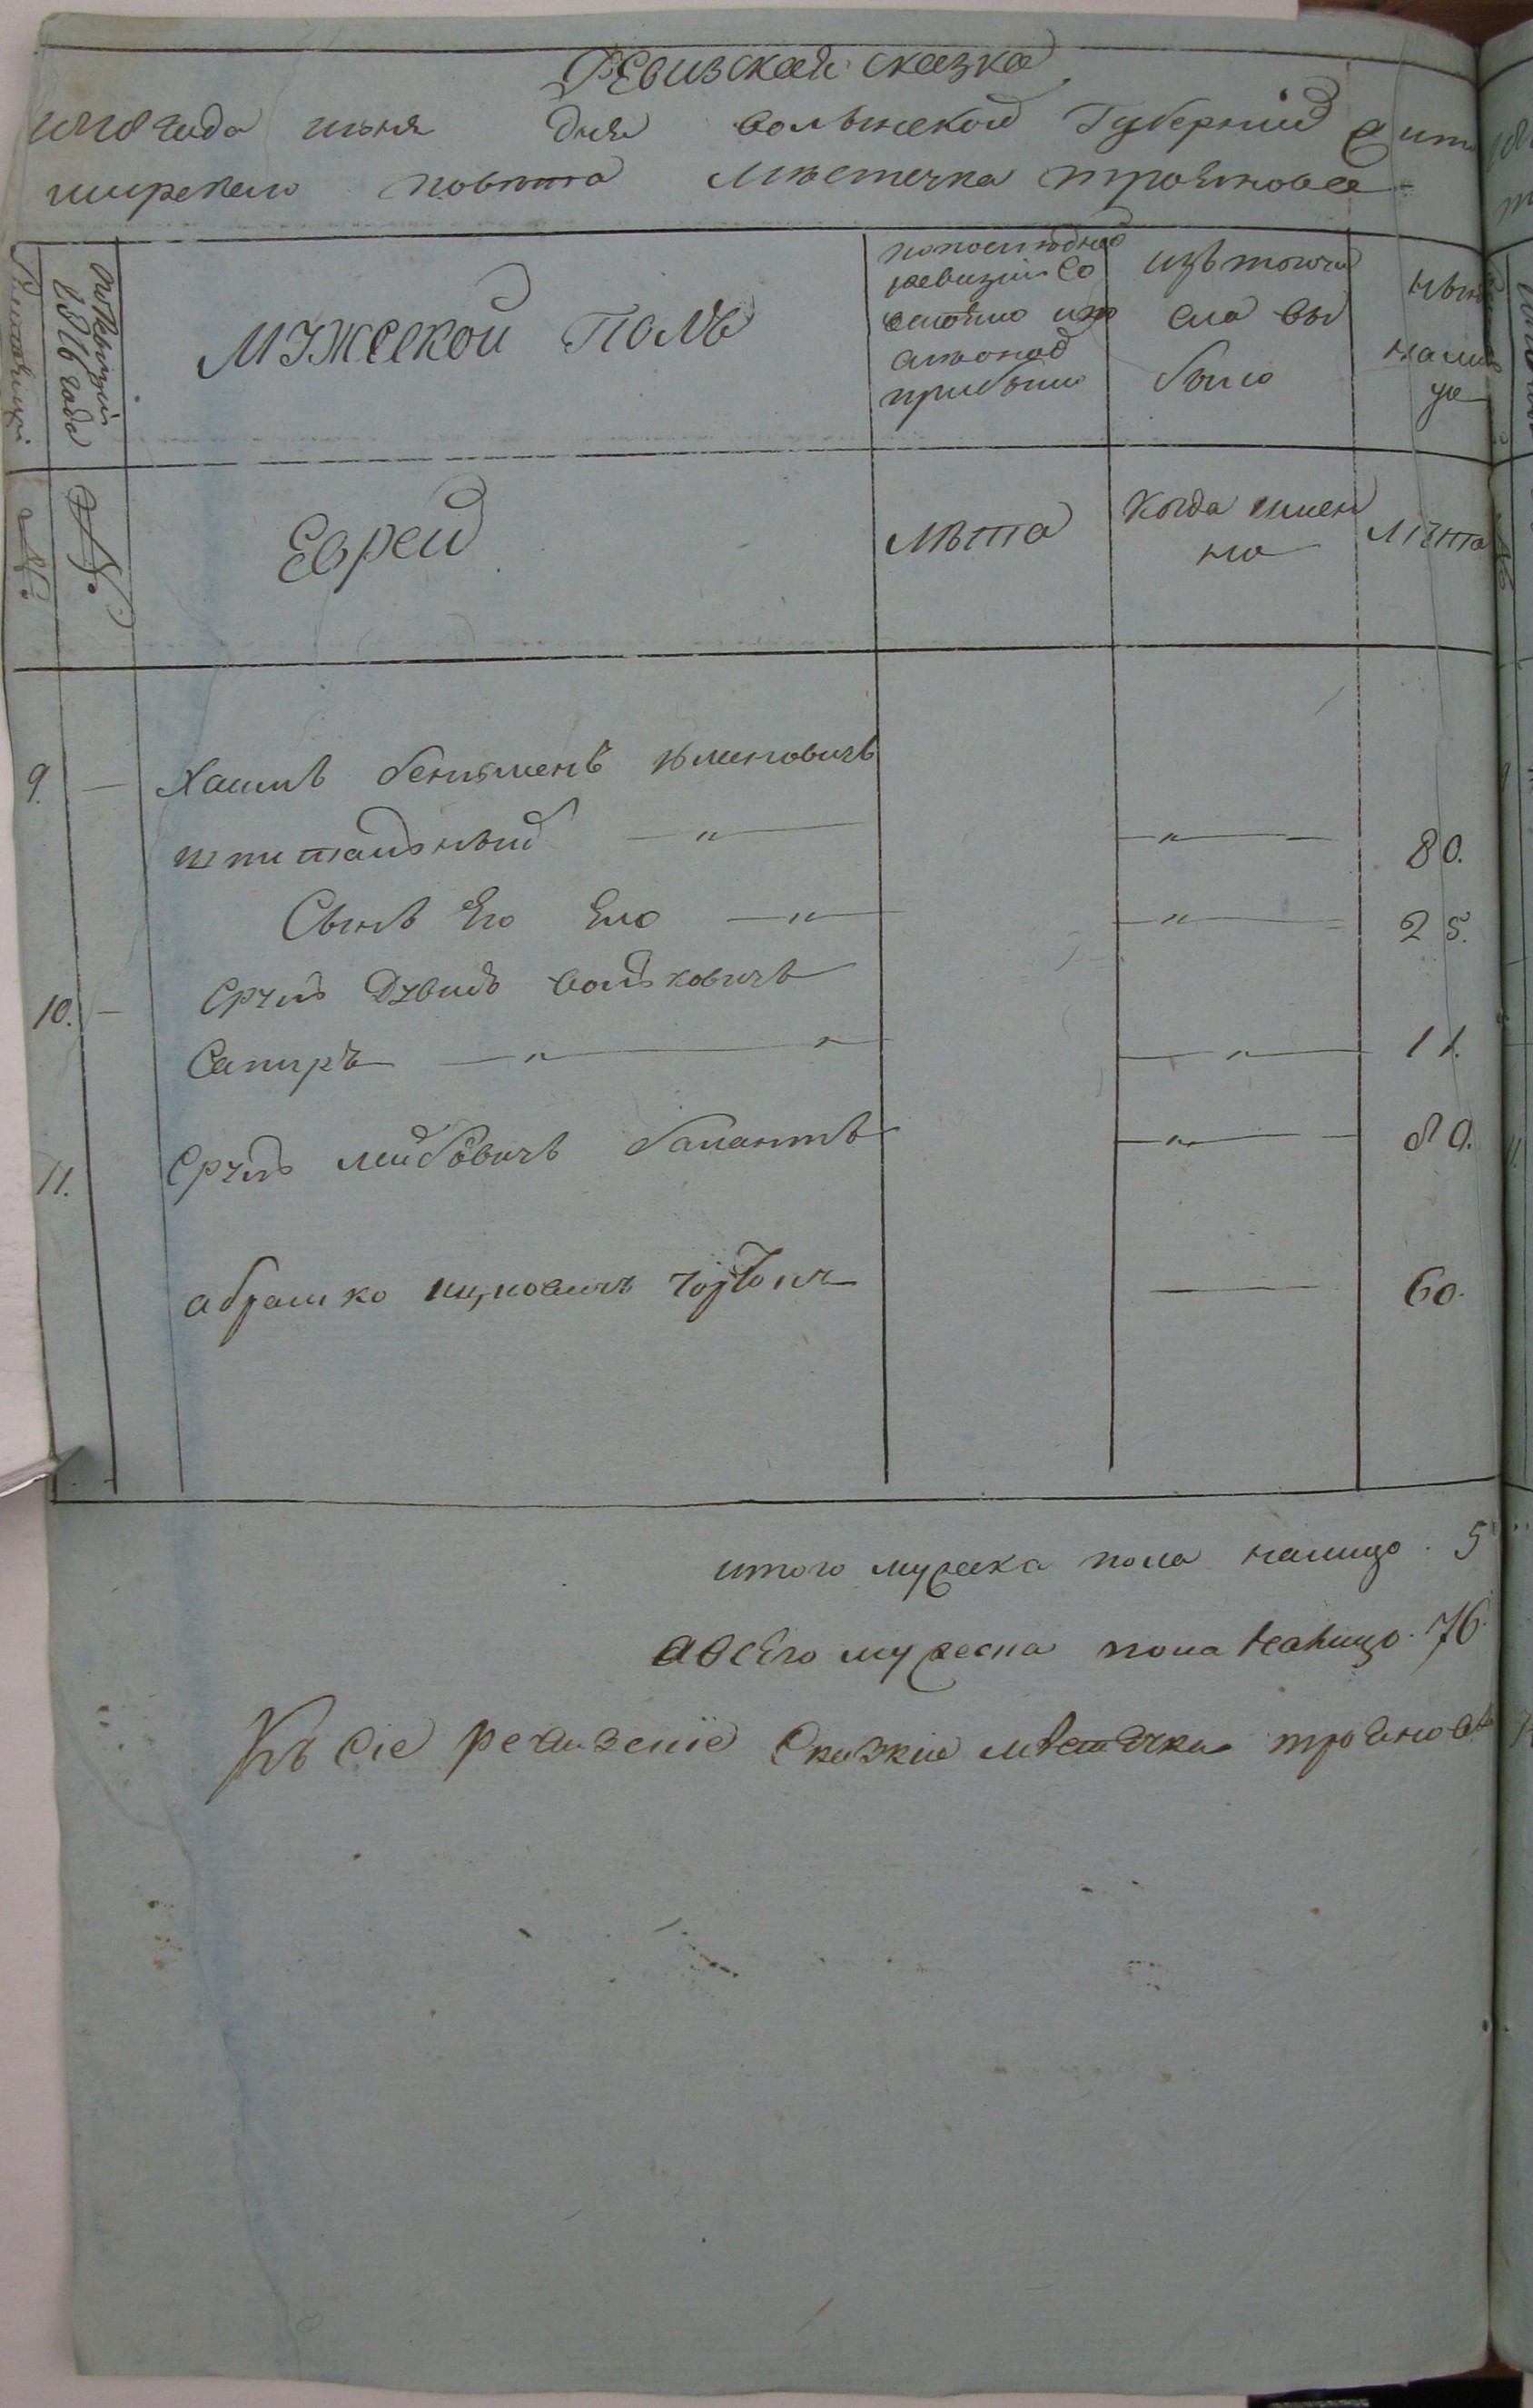 Ревизская сказка
1818 года июня дня волынской Губернiи Жито
мирскаго повѣта мѣстечка троянова
По Ревизiи 1816 года
мужеской Полъ
попоследней ревизiи Состояло и по
слѣ оной прибыло
изъ того чи
сла вы
было
нынѣ
налиц
уе
№.
№.
Евреи
лѣта
когда имен
но
лѣта
9. — Хаимъ беньяменъ
шпитальный — „ — — „ — 80.
Сынъ Его Ело — „ — — „ — 25.
10. — Сруль Дувидъ волковичъ
Сапиръ — „ — — „ — 11.
11. Сруль лейбовичъ балантъ — „ — 80.
абрашко ицковичъ — 60.
итого мужеска пола налицо. 5
авсЕго мужеска пола налицо. 76.
Къ сiе Сказкие мѣстечка троянова